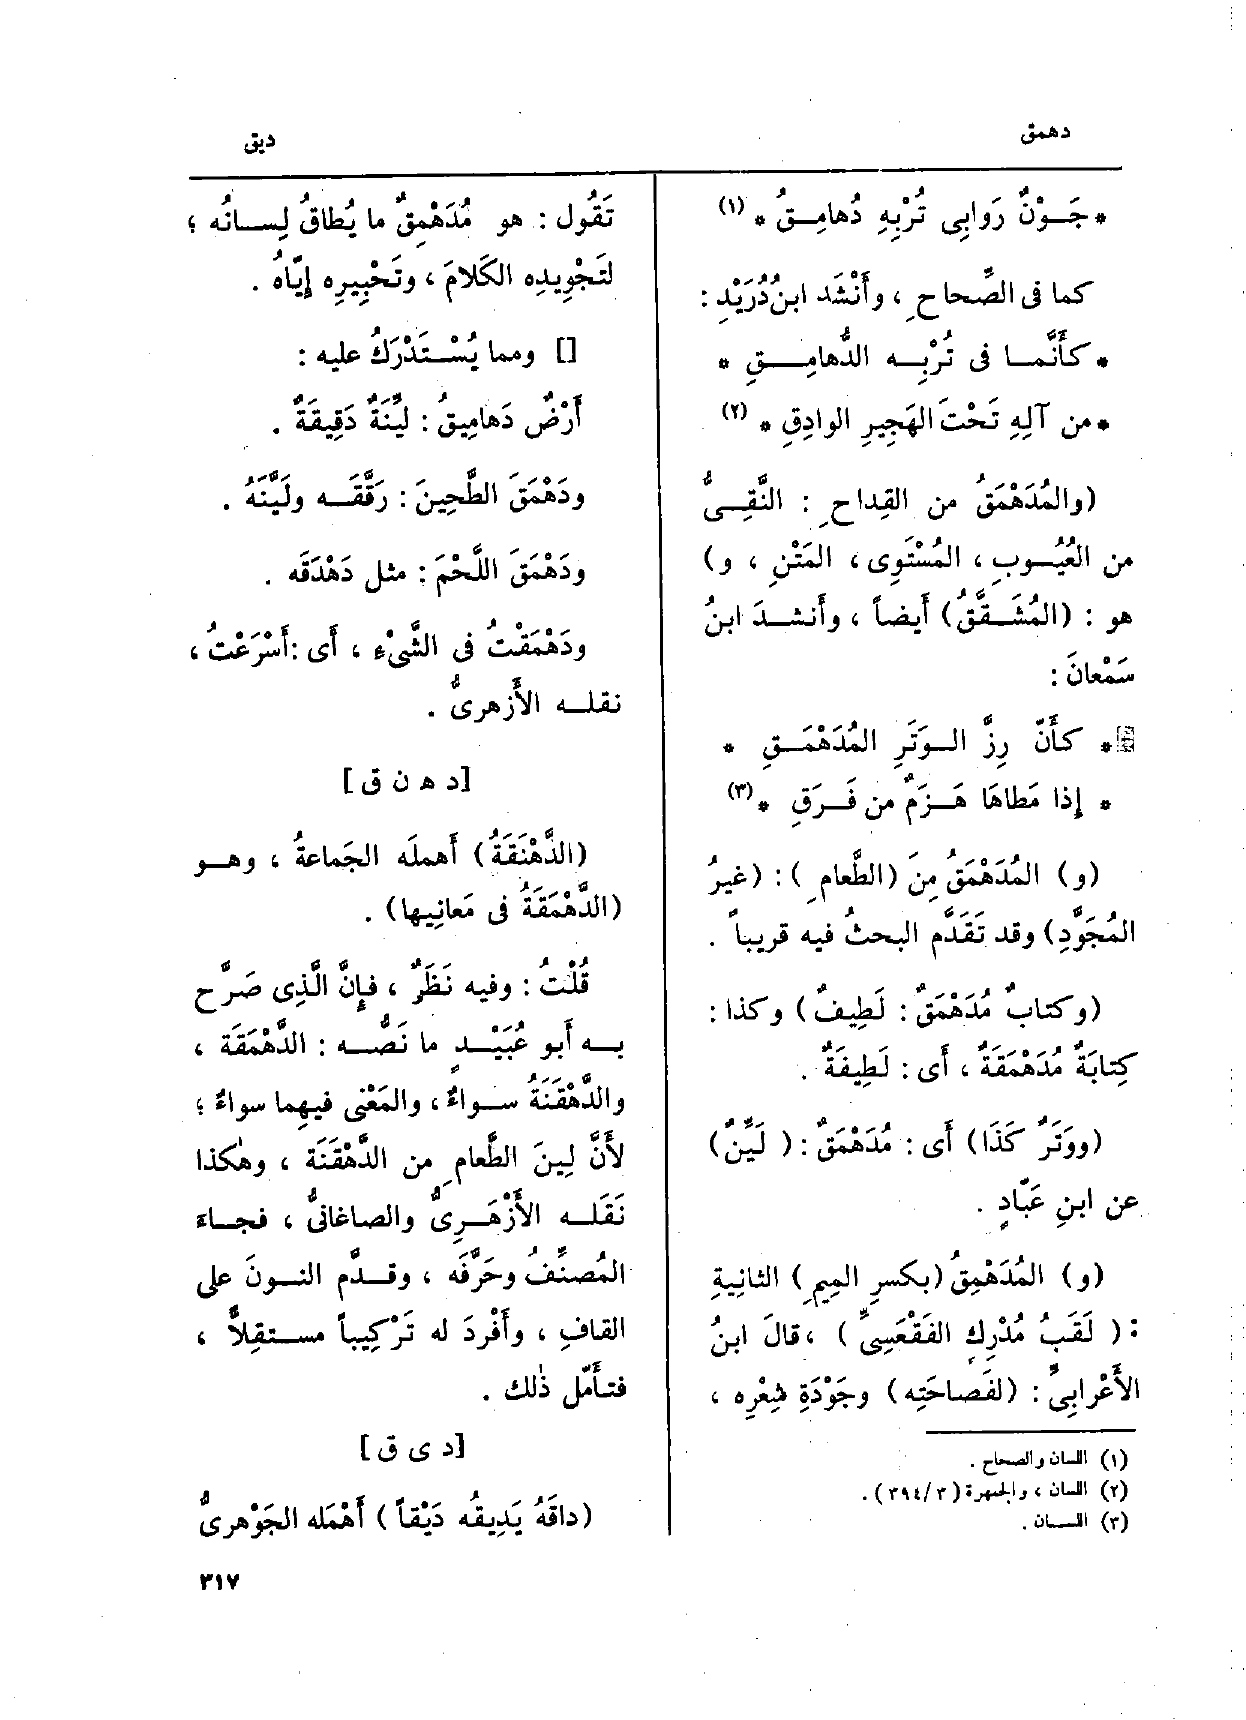 دهمق
ديق
* جَــوْنٌ رَوابِى تُرْبِهِ دُهامِـقُ * (١)
كما فى الصِّحاحِ ، وأَنْشَد ابنُدُرَيْدٍ :
* كأَنَّمــا فى تُرْبِــه الدُّهامِــقِ *
* من آلِهِ تَحْتَ الهَجِيرِ الوادِقِ * (٢)
(والمُدَهْمَقُ من القِداحِ : النَّقِــىُّ
من العُيُــوبِ ، المُسْتَوِى ، المَتْنِ ، و)
هو : (المُشَــقَّقُ) أَيضاً ، وأَنشــدَ ابنُ
سَمْعانَ :
* كأَنّ رِزَّ الــوَتَرِ المُدَهْمَــقِ *
* إِذا مَطاهَا هَــزَمٌ من فَــرَقِ * (٣)
(و) المُدَهْمَقُ مِنَ (الطَّعامِ ) : (غيرُ
المُجَوَّدِ) وقد تَقَدَّم البحثُ فيه قريباً .
(وكتابٌ مُدَهْمَقٌ : لَطِيفٌ) وكذا :
كِتابَةٌ مُدَهْمَقَةٌ ، أَى : لَطِيفَةٌ .
(ووَتَرٌ كَذَا) أَى : مُدَهْمَقٌ : ( لَيِّنٌ)
عن ابنِ عَبّادٍ .
(و) المُدَهْمِقُ (بكسرِ الميمِ) الثانِيَةِ
: ( لَقَبُ مُدْرِكٍ الفَقْعَسِىِّ ) ، قالَ ابنُ
الأَعْرابِىِّ : (لفَصاحَتِه) وجَوْدَةِ شِعْرِه ،
(١) اللسان والصحاح .
(٢) اللسان ، والجمهرة (٣/ ٣٩٤) .
(٣) اللســان .
تَقُول : هو مُدَهْمِقٌ ما يُطاقُ لِســانُه ؛
لتَجْوِيدِه الكَلامَ ، وتَحْبِيرِه إِيّاهُ .
[] ومما يُسْــتَدْرَكُ عليه :
أَرْضٌ دَهامِيقُ : لَيِّنَةٌ دَقِيقَةٌ .
ودَهْمَقَ الطَّحِينَ : رَقَّقَــه ولَيَّنَهُ .
ودَهْمَقَ اللَّحْمَ : مثل دَهْدَقَه .
ودَهْمَقْتُ فى الشَّىْءِ ، أَى :أَسْرَعْتُ ،
نقلــه الأَزهرىُّ .
[د هـ ن ق]
(الدَّهْنَقَةُ) أَهملَه الجَماعةُ ، وهــو
(الدَّهْمَقَةُ فى مَعانِيها) .
قُلْتُ : وفيه نَظَرٌ ، فإِنَّ الَّذِى صَرَّح
بــه أَبو عُبَيْــدٍ ما نَصُّــه : الدَّهْمَقَة ،
والدَّهْقَنَةُ ســواءٌ، والمَعْنى فيهما سواءٌ ؛
لأَنَّ لِينَ الطَّعامِ من الدَّهْقَنَة ، وهٰكذا
نَقَلــه الأَزْهَــرِىُّ والصاغانىُّ ، فجــاءَ
المُصنِّفُ وحَرَّفَه ، وقــدَّم النــونَ على
القافِ ، وأَفْردَ له تَرْكِيباً مســتقِلاًّ ،
فتأَمّل ذٰلك .
[د ى ق]
(داقَهُ يَدِيقُه دَيْقاً ) أَهْمَله الجَوْهرىُّ
٣١٧